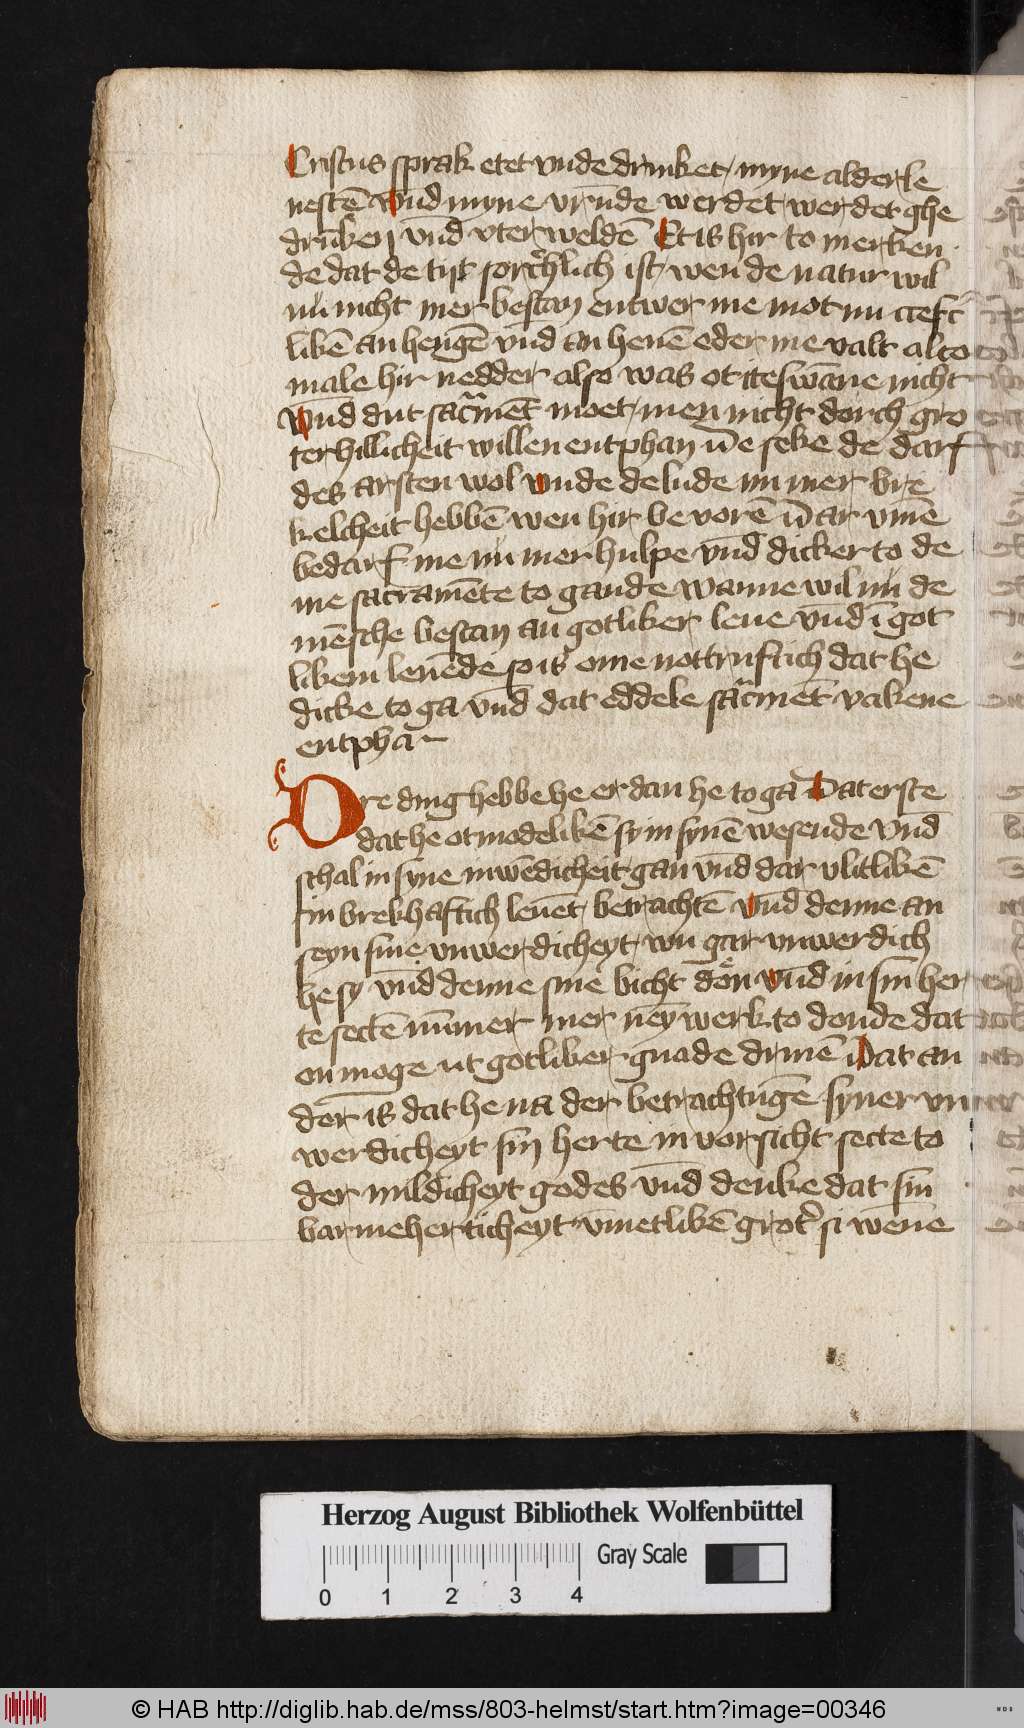 Cristus sprak etet vnde drinket myne alderle
nestē vnd myne vrūde werdet werdet ghe
drūken vnd vterweldē Et is hir to merken
de dat de tijt sorchlich ist wen de natur wil
nu nicht mer bestan entwer me mot nu
likē an hengē vnd an henē eder me valt alto
male hir nedder also was ot iteswāne nicht
vnd dut sacmēt moet men nicht dorch gro
ter hillicheit willen entphan we seke de darf
des arsten wol vnde de lude nu mer bre
kelcheit hebbē wen hir bevorē dar vmē
bedarf me nu mer hulpe vnd dicker to de
me sacramēte to gande wanne wil nu de
mēsche bestan an gotliker leue vnd ī got
likem leuēde so is ome nottruftich dat he
dicke to ga vnd dat eddele sacmēt vakene
entpha
Dre ding hebbe he er dan he to ga Dat erste
dat he otmodelikē sy in synē wesende vnd
schal in syne inwēdicheit gan vnd dar vlitlikē
sin brekhaftich leuēt betrachtē vnd denne an
seyn sine vnwerdicheyt wu gar vnwerdich
he sy vnd denne sine bicht don vnd in sin her
te sectē nūmer mer neyn werk to donde dat
on moge ut gotliker gnade driuē Dat an
der is dat he na der betrachtūgē syner vn
werdicheyt sin herte in vorsicht secte to
der mildicheyt godes vnd denke dat sin
barmeherticheyt vmetlikē groter si wēne
Herzog August Bibliothek Wolfenbüttel
0 1 2 3 4
Gray Scale
© HAB http://diglib.hab.de/mss/803-helmst/start.htm?image=00346